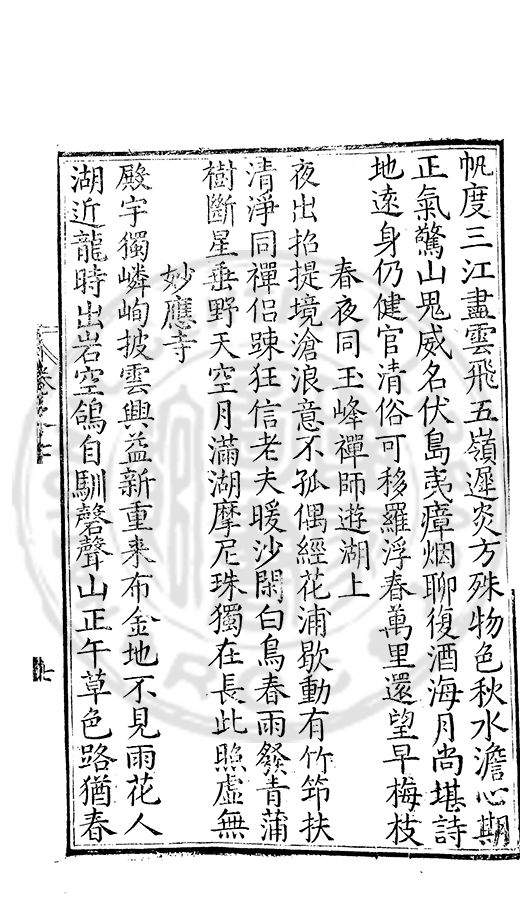 帆度三江盡雲飛五嶺遲炎方殊物色秋水澹心期
正氣驚山鬼威名伏島夷瘴烟聊復酒海月尚堪詩
地遠身仍健官清俗可移羅浮春萬里還望早梅枝
春夜同玉峰禪師遊湖上
夜出招提境滄浪意不孤偶經花浦歇動有竹笻扶
清淨同禪侶踈狂信老夫暖沙閑白鳥春雨發青蒲
樹斷星垂野天空月滿湖摩尼珠獨在長此照虛無
妙應寺
殿宇獨嶙峋披雲興益新重来布金地不見雨花人
湖近龍時出岩空鴿自馴磬聲山正午草色路猶春